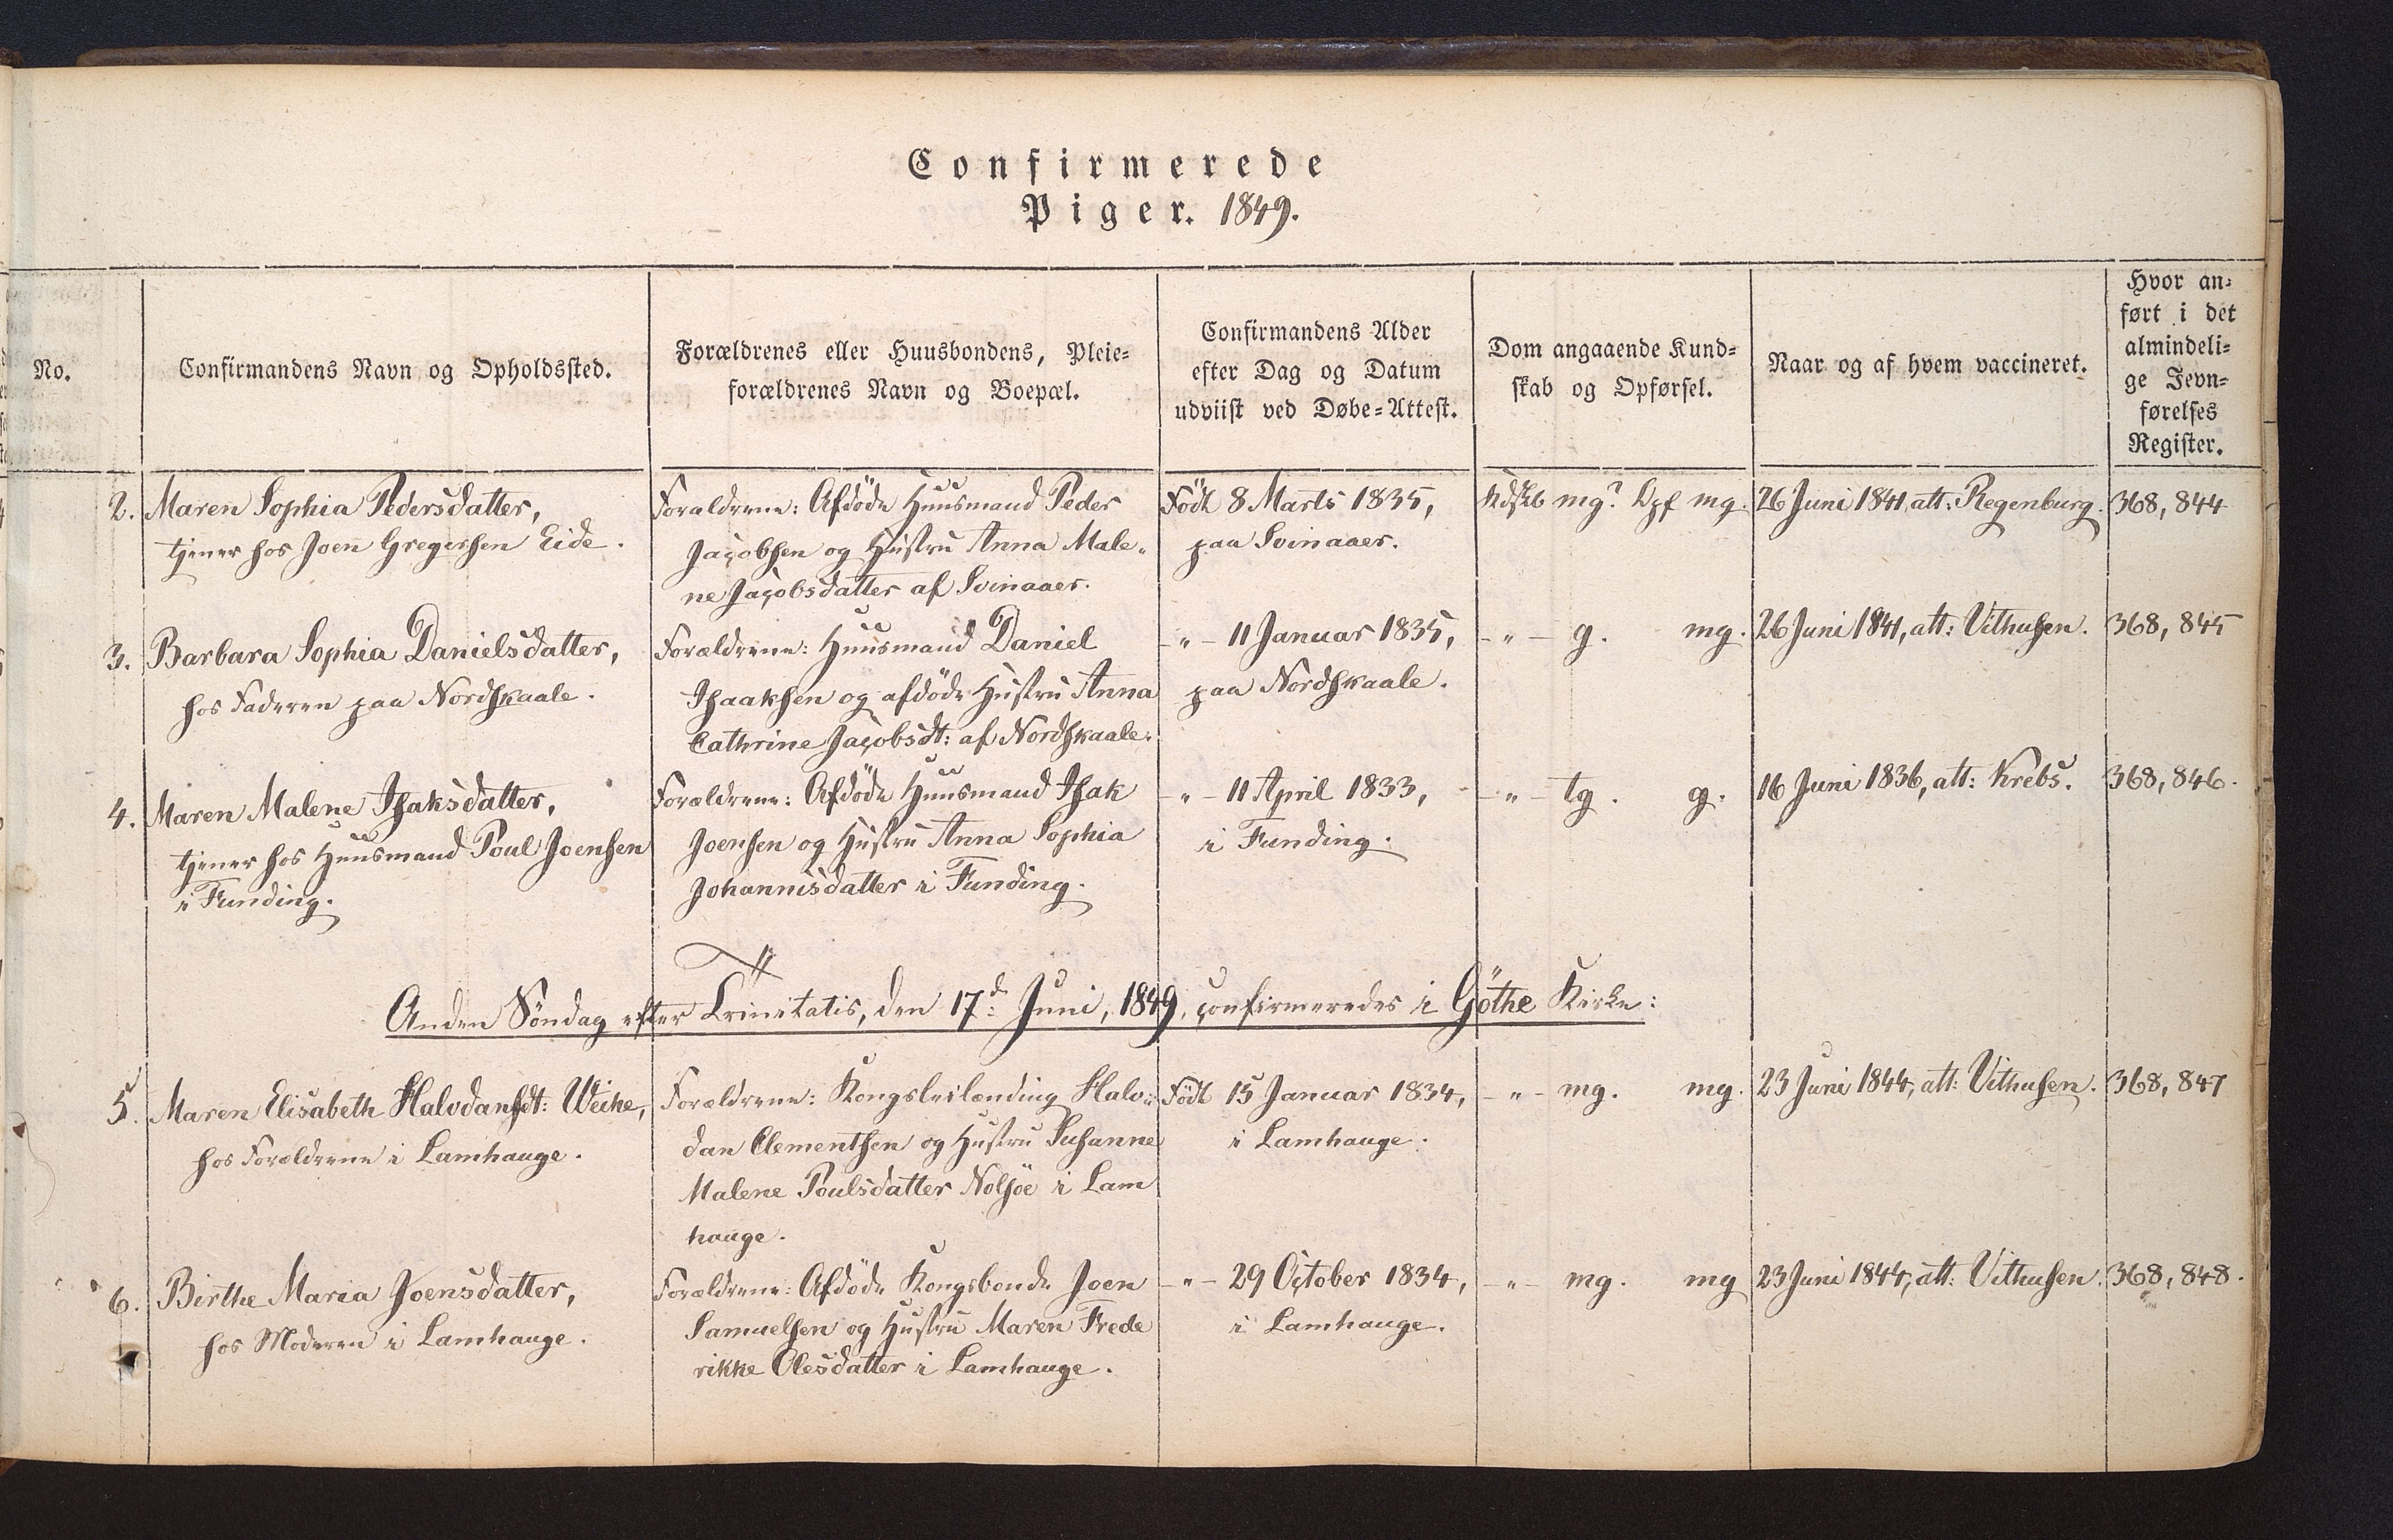 Confirmerede
Piger. 1849.
No.
Confirmandens Navn og Opholdssted.
Forældrenes eller Huusbondens, Pleie-
forældrenes Navn og Boepæl.
Confirmandens Alder
efter Dag og Datum
udviist ved Døbe-Attest.
Dom angaaende Kund-
skab og Opførsel.
Naar og af hvem vaccineret.
Hvor an-
ført i det
almindeli-
ge Jevn-
førelses
Register.
2. Maren Sophia Pedersdatter,
tjener hos Joen Gregersen Eide.
Forældrene: Afdöde Huusmand Peder
Jacobsen og Hustru Anna Male-
ne Jacobsdatter af Svinaaer.
Födt 8 Marts 1835,
paa Svinaaer.
Kdskb mg? Opf mg.
26 Juni 1841, att: Regenburg.
368, 844
3. Barbara Sophia Danielsdatter,
hos Faderen paa Nordskaale.
Forældrene: Huusmand Daniel
Isaaksen og afdöde Hustru Anna
Cathrine Jacobsdt: af Nordskaale.
-"- 11 Januar 1835,
paa Nordskaale.
-"- g. mg.
26 Juni 1841, att: Vithusen.
368, 845
4. Maren Malene Isaksdatter,
tjener hos Huusmand Poul Joensen
i Funding.
Forældrene: Afdöde Huusmand Isak
Joensen og Hustru Anna Sophia
Johannisdatter i Funding.
-"- 11 April 1833,
i Funding.
-"- tg. g.
16 Juni 1836, att: Krebs.
368, 846.
Anden Söndag efter Trinitatis, den 17d: Juni, 1849, confirmeredes i Göthe Kirke:
5. Maren Elisabeth Halvdansdt: Weihe,
hos Forældrene i Lamhauge.
Forældrene: Kongsleilænding Halv-
dan Clementsen og Hustru Susanne
Malene Poulsdatter Nolsöe i Lam
hauge.
Födt 15 Januar 1834,
i Lamhauge.
-"- mg. mg.
23 Juni 1844, att: Vithusen.
368, 847
6. Birthe Maria Joensdatter,
hos Moderen i Lamhauge.
Forældrene: Afdöde Kongsbonde Joen
Samuelsen og Hustru Maren Frede
rikke Olesdatter i Lamhauge.
-"- 29 October 1834,
i Lamhauge.
-"- mg. mg
23 Juni 1844, att: Vithusen.
368, 848.